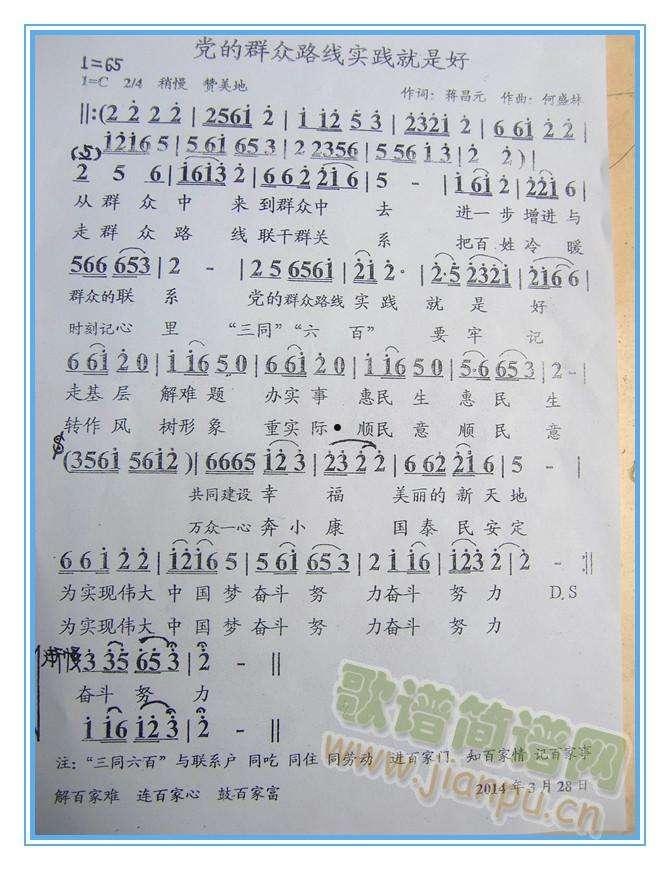 党的群众路线实践就是好
1=65
1=C 2/4 稍慢 赞美地 作词：蒋昌元 作曲：何盛林
‖:(2̇ 2̇ 2̇ 2̇ | 2561̇ 2̇ | 1̇ 1̇2̇ 5 3̇ | 2̇3̇2̇1̇ 2̇ | 6 61̇ 2̇ 2̇ |
1̇2̇1̇6 5 | 5 61̇ 65 3 | 2 2356 | 5 56 1̇ 3̇ | 2̇ 2̇ ) |
(5)
2 5 6 | 1̇61̇3̇ 2̇ | 6 6 2̇ 2̇1̇6 | 5 - | 1̇ 61̇ 2̇ | 2̇2̇1̇ 6 |
从 群 众 中 来 到群众中 去 进一 步 增进 与
走 群 众 路 线 联干群关 系 把百 姓 冷 暖
566 653 | 2 - | 2 5 6561̇ | 2̇1̇ 2̇· | 2̇·5 2̇3̇2̇1̇ | 2̇1̇6 6 |
群众的联 系 党的群众路线 实 践 就 是 好
时刻记心 里 “三同”“六 百” 要 牢 记
6 61̇ 2̇ 0 | 1̇ 1̇6 5 0 | 6 61̇ 2̇ 0 | 1̇ 1̇6 5 0 | 5·6 653 | 2 - |
走基 层 解难 题 办实 事 惠民 生 惠 民 生
转作 风 树形 象 重实 际· 顺民 意 顺 民 意
𝄋
(3561̇ 5612̇) | 6665 1̇2̇ 3̇ | 2̇3̇ 2̇ 2̇ | 6 62̇ 2̇1̇ 6 | 5 - |
共同建设 幸 福 美丽的 新 天 地
万众一心 奔 小 康 国泰 民 安 定
6 6 1̇ 2̇ 2̇ | 1̇2̇1̇6 5 | 5 61̇ 65 3 | 2̇ 1̇1̇6 | 1̇2̇3̇ 2̇ | 2̇ - :‖
为实现伟大 中 国 梦 奋斗 努 力奋斗 努 力 D.S
为实现伟大 中 国 梦 奋斗 努 力奋斗 努 力
渐慢 3̇ 3̇5̇ 6̇5̇ 3̇ | 2̇ - ‖
奋斗 努 力
1̇ 1̇6 1̇2̇ 3̇ | 2̇ - ‖
注：“三同六百”与联系户 同吃 同住 同劳动 进百家门 知百家情 记百家事
解百家难 连百家心 鼓百家富
2014 年 3 月 28 日
歌谱简谱网
www.jianpu.cn